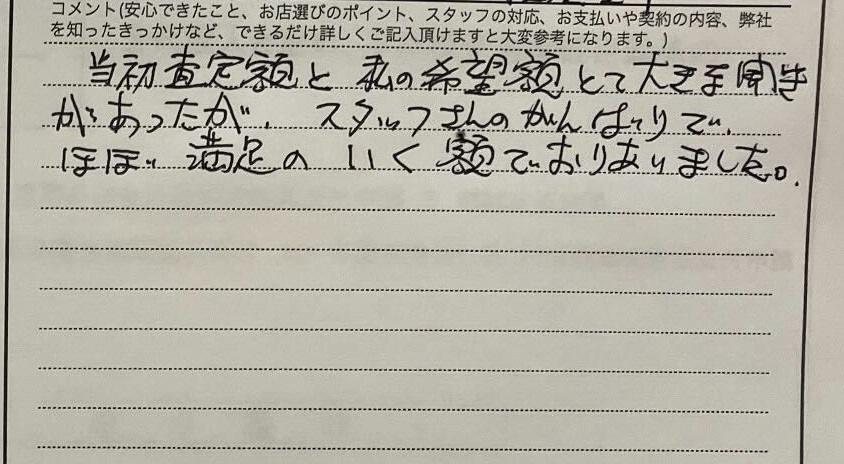 コメント(安心できたこと、お店選びのポイント、スタッフの対応、お支払いや契約の内容、弊社
を知ったきっかけなど、できるだけ詳しくご記入頂けますと大変参考になります。)
当初査定額と私の希望額とて大きま開き
があったが、スタッフさんのがんばりで、
ほぼ満足のいく額でおりあいました。